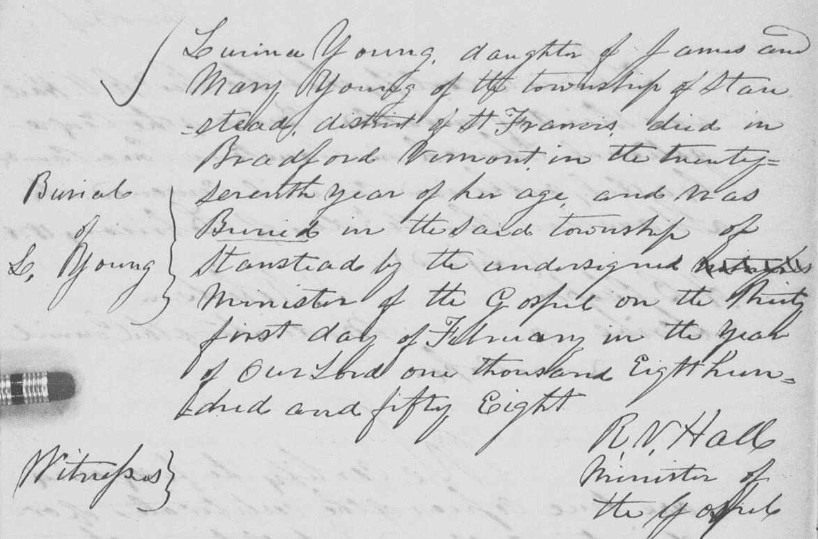 Lurina Young, daughter of James and
Mary Young of the township of Stan
-stead, district of St Francis, died in
Bradford Vermont, in the twenty=
seventh year of her age, and was
Buried in the said township of
Stanstead by the undersigned
Minister of the Gospel on the thirty
first day of February in the year
of Our Lord one thousand Eight hun=
dred and fifty Eight
Burial
of
L, Young
R. V. Hall
Minister of
the Gospel
Witnesses